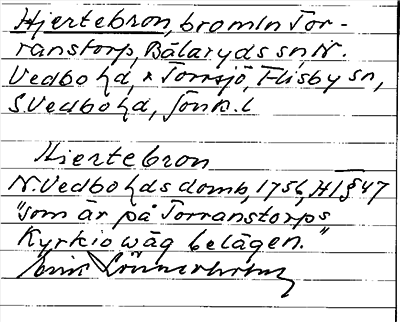 Hjertebron, bro mln Tor-
ranstorp, Bälaryds sn, N.
Vedbo hd, & Torrsjö, Flisby sn,
S. Vedbo hd, Jönk. l
Hiertebron
N. Vedbo hds domb, 1756, HT § 47
"som är på Torranstorps
Kyrkio wäg belägen."